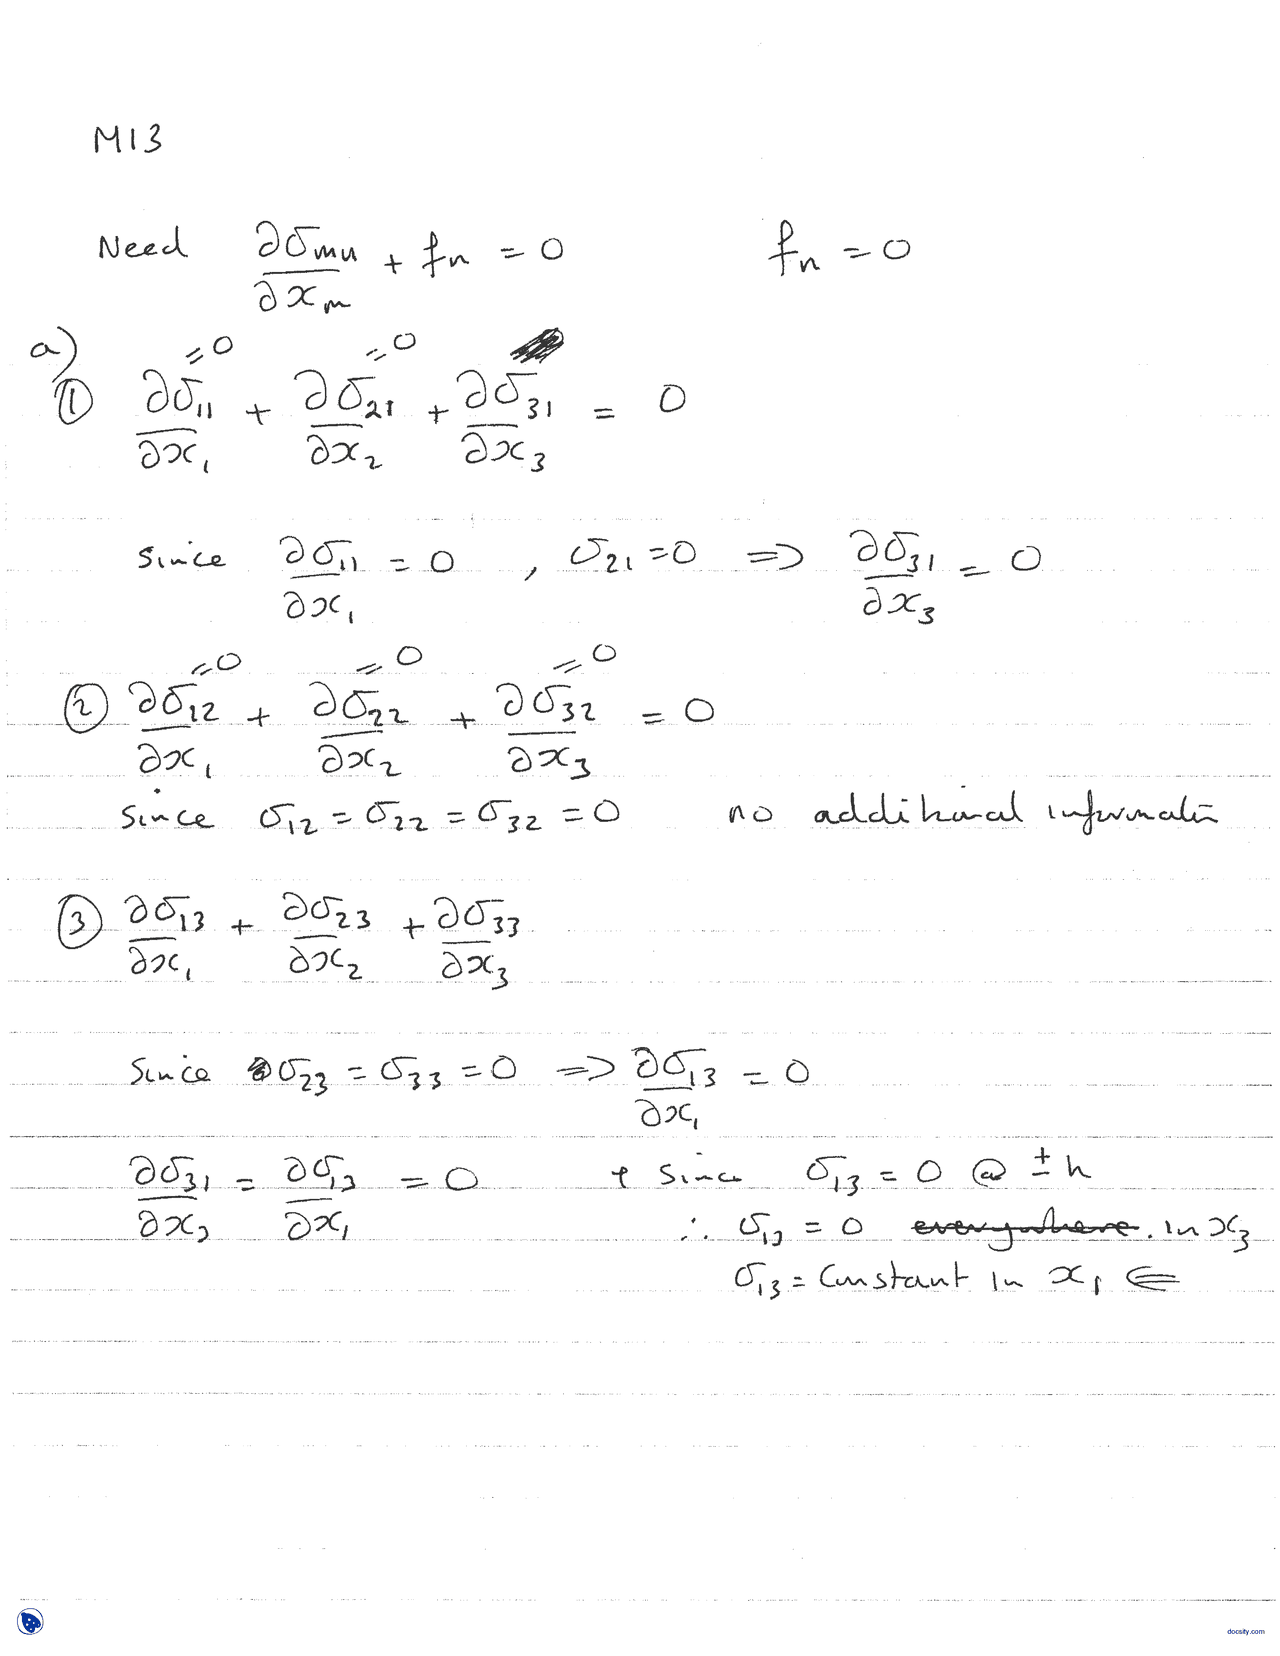 M13
Need ∂σmn/∂xm + fn = 0    fn = 0
a)
=0 =0
① ∂σ11/∂x1 + ∂σ21/∂x2 + ∂σ31/∂x3 = 0
Since ∂σ11/∂x1 = 0 , σ21 = 0 => ∂σ31/∂x3 = 0
=0 =0 =0
② ∂σ12/∂x1 + ∂σ22/∂x2 + ∂σ32/∂x3 = 0
Since σ12 = σ22 = σ32 = 0    no additional information
③ ∂σ13/∂x1 + ∂σ23/∂x2 + ∂σ33/∂x3
Since σ23 = σ33 = 0 => ∂σ13/∂x1 = 0
∂σ31/∂x3 = ∂σ13/∂x1 = 0    + Since σ13 = 0 @ ±h
∴ σ13 = 0 everywhere. in x3
σ13 = Constant in x1 ⇐
docsity.com